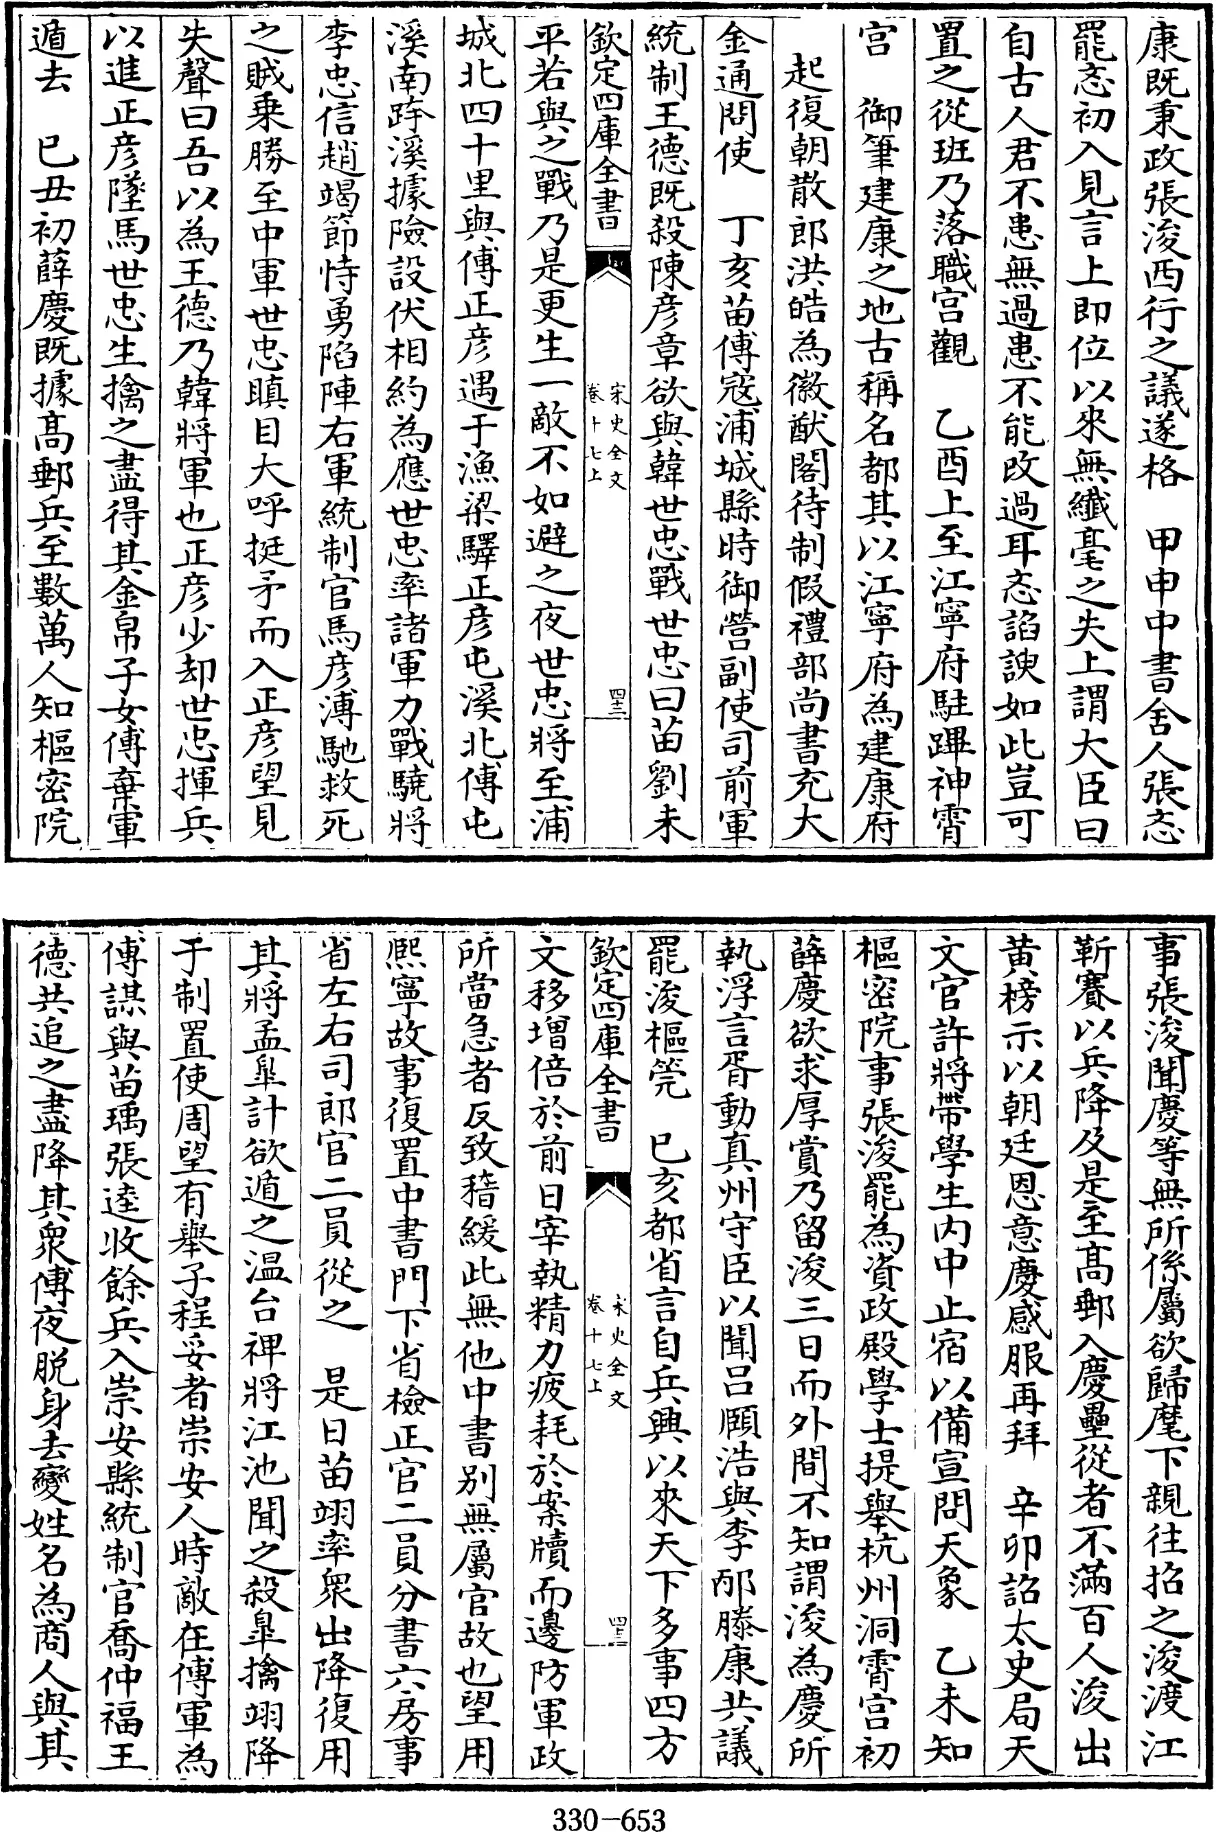 康既秉政張浚西行之議遂格　甲申中書舍人張忞
罷忞初入見言上即位以來無纎毫之失上謂大臣曰
自古人君不患無過患不能改過耳忞諂諛如此豈可
置之從班乃落職宫觀　乙酉上至江寧府駐蹕神霄
宫　御筆建康之地古稱名都其以江寧府為建康府
起復朝散郎洪皓為徽猷閣待制假禮部尚書充大
金通問使　丁亥苗傅寇浦城縣時御營副使司前軍
統制王德既殺陳彦章欲與韓世忠戰世忠曰苗劉未
欽定四庫全書
宋史全文
卷十七上
四十三
平若與之戰乃是更生一敵不如避之夜世忠將至浦
城北四十里與傅正彦遇于漁梁驛正彦屯溪北傅屯
溪南跨溪據險設伏相約為應世忠率諸軍力戰驍將
李忠信趙竭節恃勇陷陣右軍統制官馬彦溥馳救死
之賊乗勝至中軍世忠瞋目大呼挺矛而入正彦望見
失聲曰吾以為王德乃韓將軍也正彦少却世忠揮兵
以進正彦墜馬世忠生擒之盡得其金帛子女傅棄軍
遁去　已丑初薛慶既據高郵兵至數萬人知樞密院
事張浚聞慶等無所係屬欲歸麾下親往招之浚渡江
靳賽以兵降及是至高郵入慶壘從者不滿百人浚出
黄榜示以朝廷恩意慶感服再拜　辛卯詔太史局天
文官許將帶學生内中止宿以備宣問天象　乙未知
樞密院事張浚罷為資政殿學士提舉杭州洞霄宫初
薛慶欲求厚賞乃留浚三日而外間不知謂浚為慶所
執浮言胥動真州守臣以聞吕頤浩與李邴滕康共議
罷浚樞筦　已亥都省言自兵興以來天下多事四方
欽定四庫全書
宋史全文
卷十七上
四十三
文移增倍於前日宰執精力疲耗於案牘而邊防軍政
所當急者反致稽緩此無他中書别無屬官故也望用
熙寧故事復置中書門下省檢正官二員分書六房事
省左右司郎官二員從之　是日苗翊率衆出降復用
其將孟臯計欲遁之温台裨將江池聞之殺臯擒翊降
于制置使周望有舉子程妥者崇安人時敵在傅軍為
傅謀與苗瑀張逵收餘兵入崇安縣統制官喬仲福王
德共追之盡降其衆傅夜脱身去變姓名為商人與其
330-653